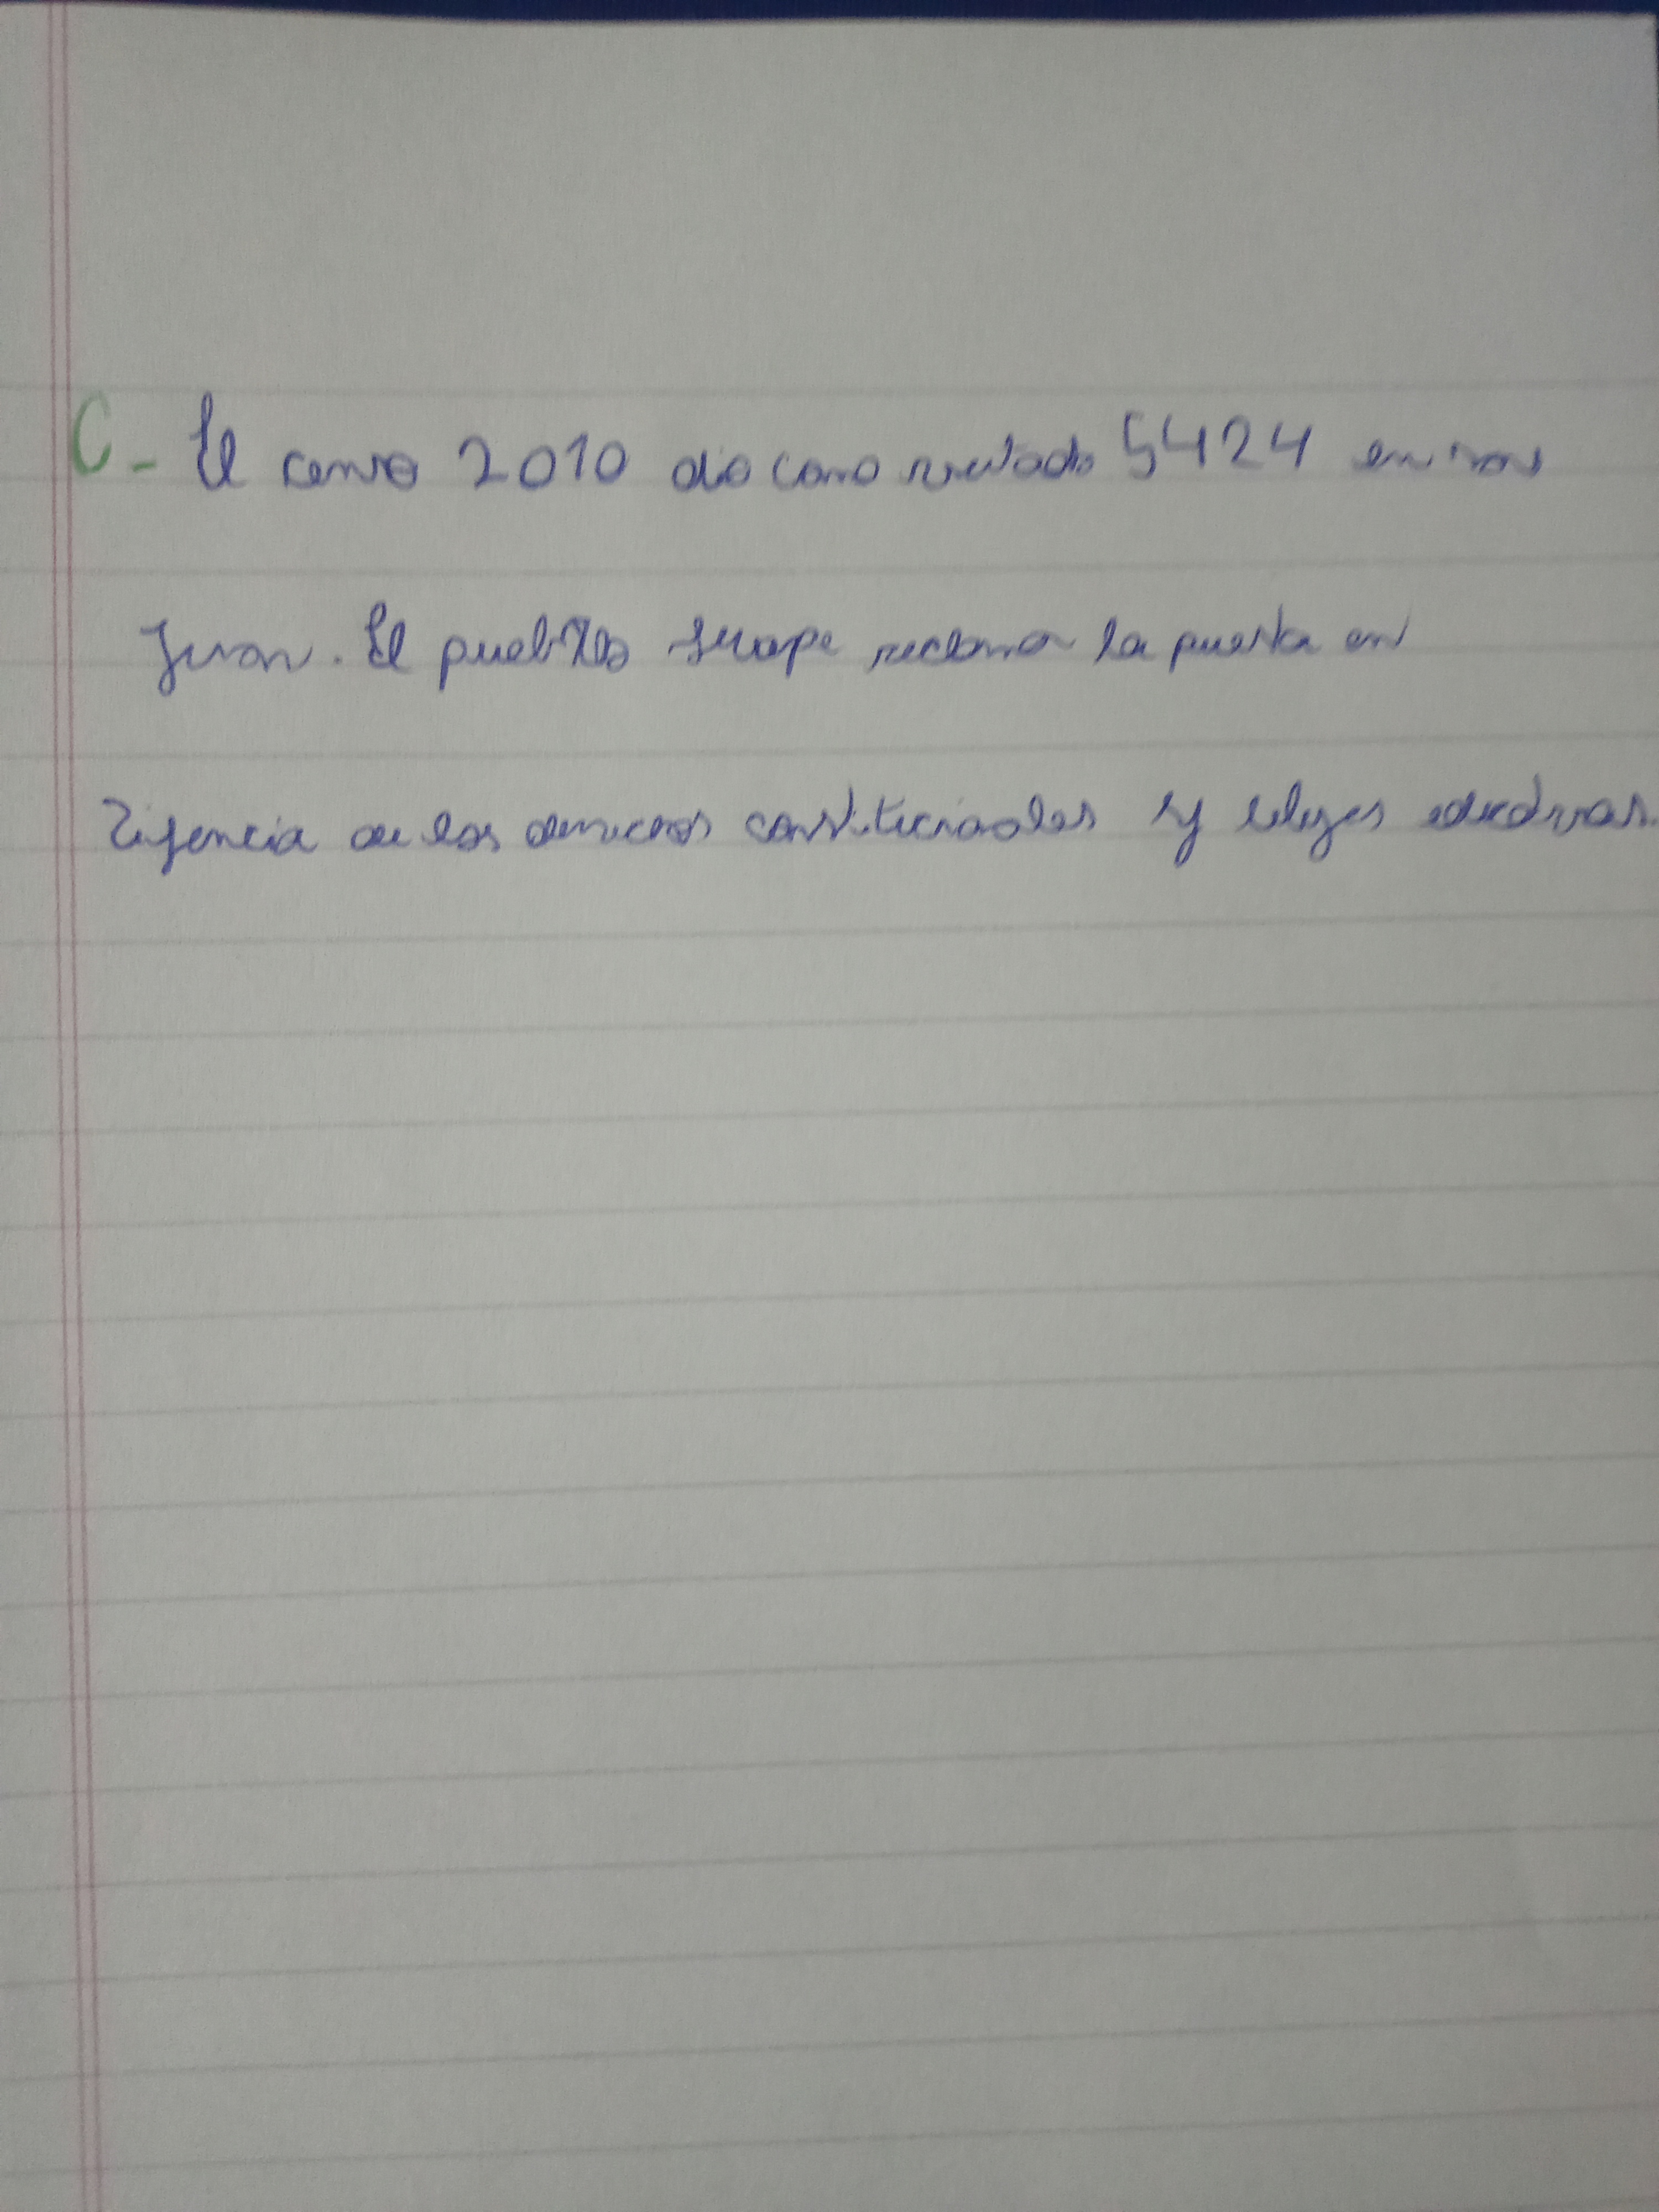 C- El censo 2010 dio como resultado 5424 en san
Juan. El pueblo Huarpe reclama la puesta en
vigencia de los derechos constitucionales y leyes educativas.